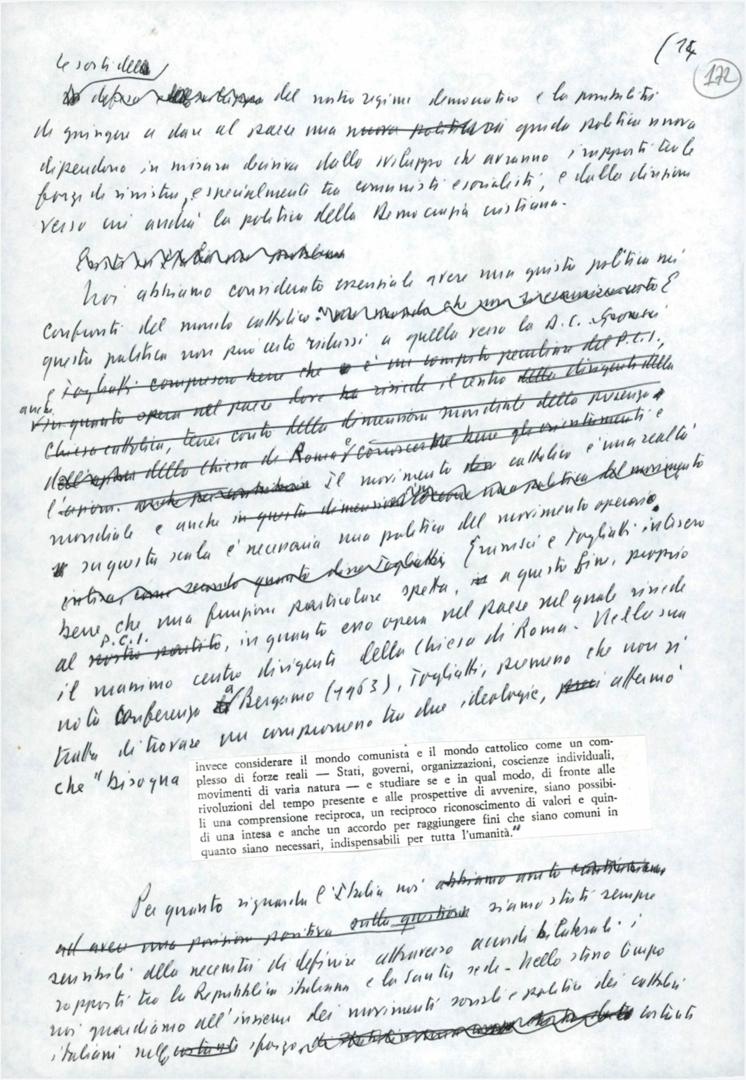 (14
172
Le sorti della
difesa dello sviluppo del nostro regime democratico e la possibilità
di giungere a dare al paese una nuova politica guida politica nuova
dipendono in misura decisiva dallo sviluppo che avranno i rapporti tra le
forze di sinistra, e specialmente tra comunisti e socialisti, e dalla direzione
verso cui andrà la politica della Democrazia cristiana.
Noi abbiamo considerato essenziale avere una giusta politica nei
confronti del mondo cattolico. una mondo che non E
questa politica non può certo ridursi a quella verso la D.C. Gramsci
e Togliatti compresero bene che è un compito peculiare del P.C.I.,
anche
in quanto opera nel paese dove ha risiede il centro della dirigenti della
Chiesa cattolica, tener conto della dimensione mondiale della presenza e
dell'opera della Chiesa di Roma e conoscerne bene gli orientamenti e
l'azione. anche per Il movimento cattolico è una realtà
mondiale e anche in questa dimensione una politica del movimento
su questa scala è necessaria una politica del movimento operaio.
intesa, come secondo quanto disse Togliatti Gramsci e Togliatti intesero
bene che una funzione particolare spetta, a questo fine, proprio
P.C.I.
al nostro partito, in quanto esso opera nel paese nel quale risiede
il massimo centro dirigente della Chiesa di Roma. Nella sua
nota Conferenza a Bergamo (1963), Togliatti, premesso che non si
tratta di trovare un compromesso tra due ideologie, affermò
che "bisogna
invece considerare il mondo comunista e il mondo cattolico come un com-
plesso di forze reali — Stati, governi, organizzazioni, coscienze individuali,
movimenti di varia natura — e studiare se e in qual modo, di fronte alle
rivoluzioni del tempo presente e alle prospettive di avvenire, siano possibi-
li una comprensione reciproca, un reciproco riconoscimento di valori e quin-
di una intesa e anche un accordo per raggiungere fini che siano comuni in
quanto siano necessari, indispensabili per tutta l'umanità."
Per quanto riguarda l'Italia noi abbiamo avuto
ad avere una posizione positiva sulla questione siamo stati sempre
sensibili alla necessità di definire attraverso accordi bilaterali i
rapporti tra la Repubblica italiana e la Santa sede. Nello stesso tempo
noi guardiamo all'insieme dei movimenti sociali e politici dei cattolici
italiani nello costante sforzo costante